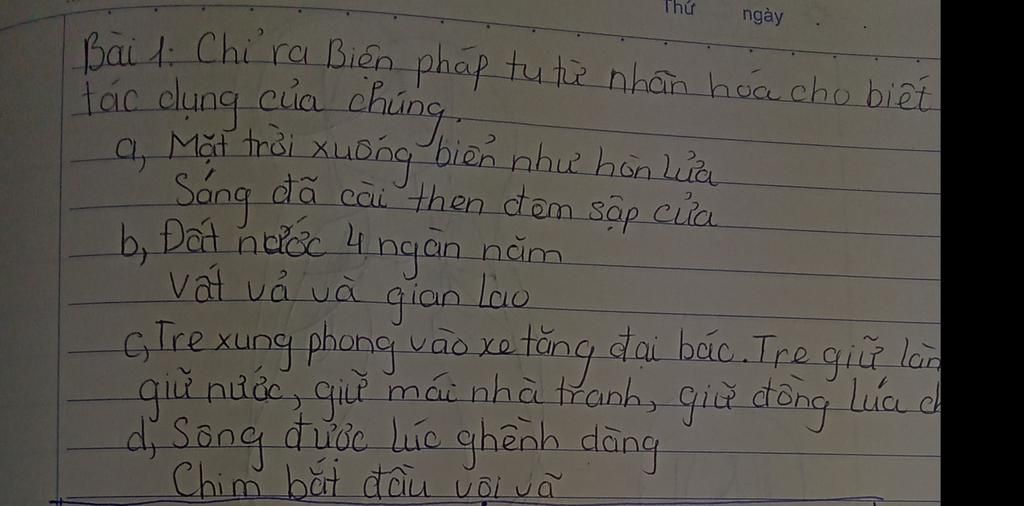 Thứ ngày . .
Bài 1: Chỉ ra Biên pháp tu từ nhân hóa cho biết
tác dụng của chúng.
a, Mặt trời xuống biển như hòn lửa
Sóng đã cài then đêm sập cửa
b, Đất nước 4 ngàn năm
Vất vả và gian lao
c, Tre xung phong vào xe tăng đại bác. Tre giữ làn
giữ nước, giữ mái nhà tranh, giữ đồng lúa ch
d, Sông được lúc ghềnh dàng
Chim bắt đầu vội vã